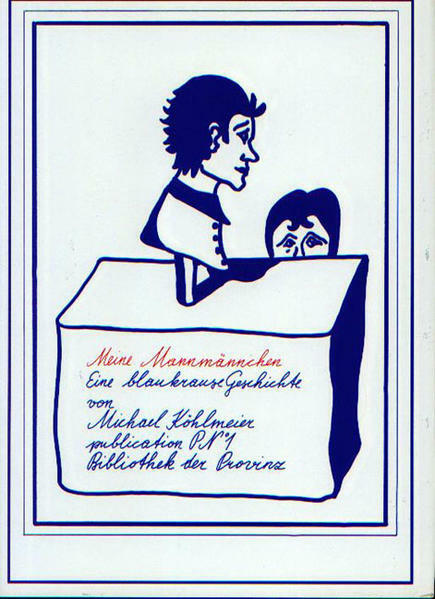 Meine Mannmännchen
Eine blaukrause Geschichte
von
Michael Köhlmeier
publication PN°1
Bibliothek der Provinz